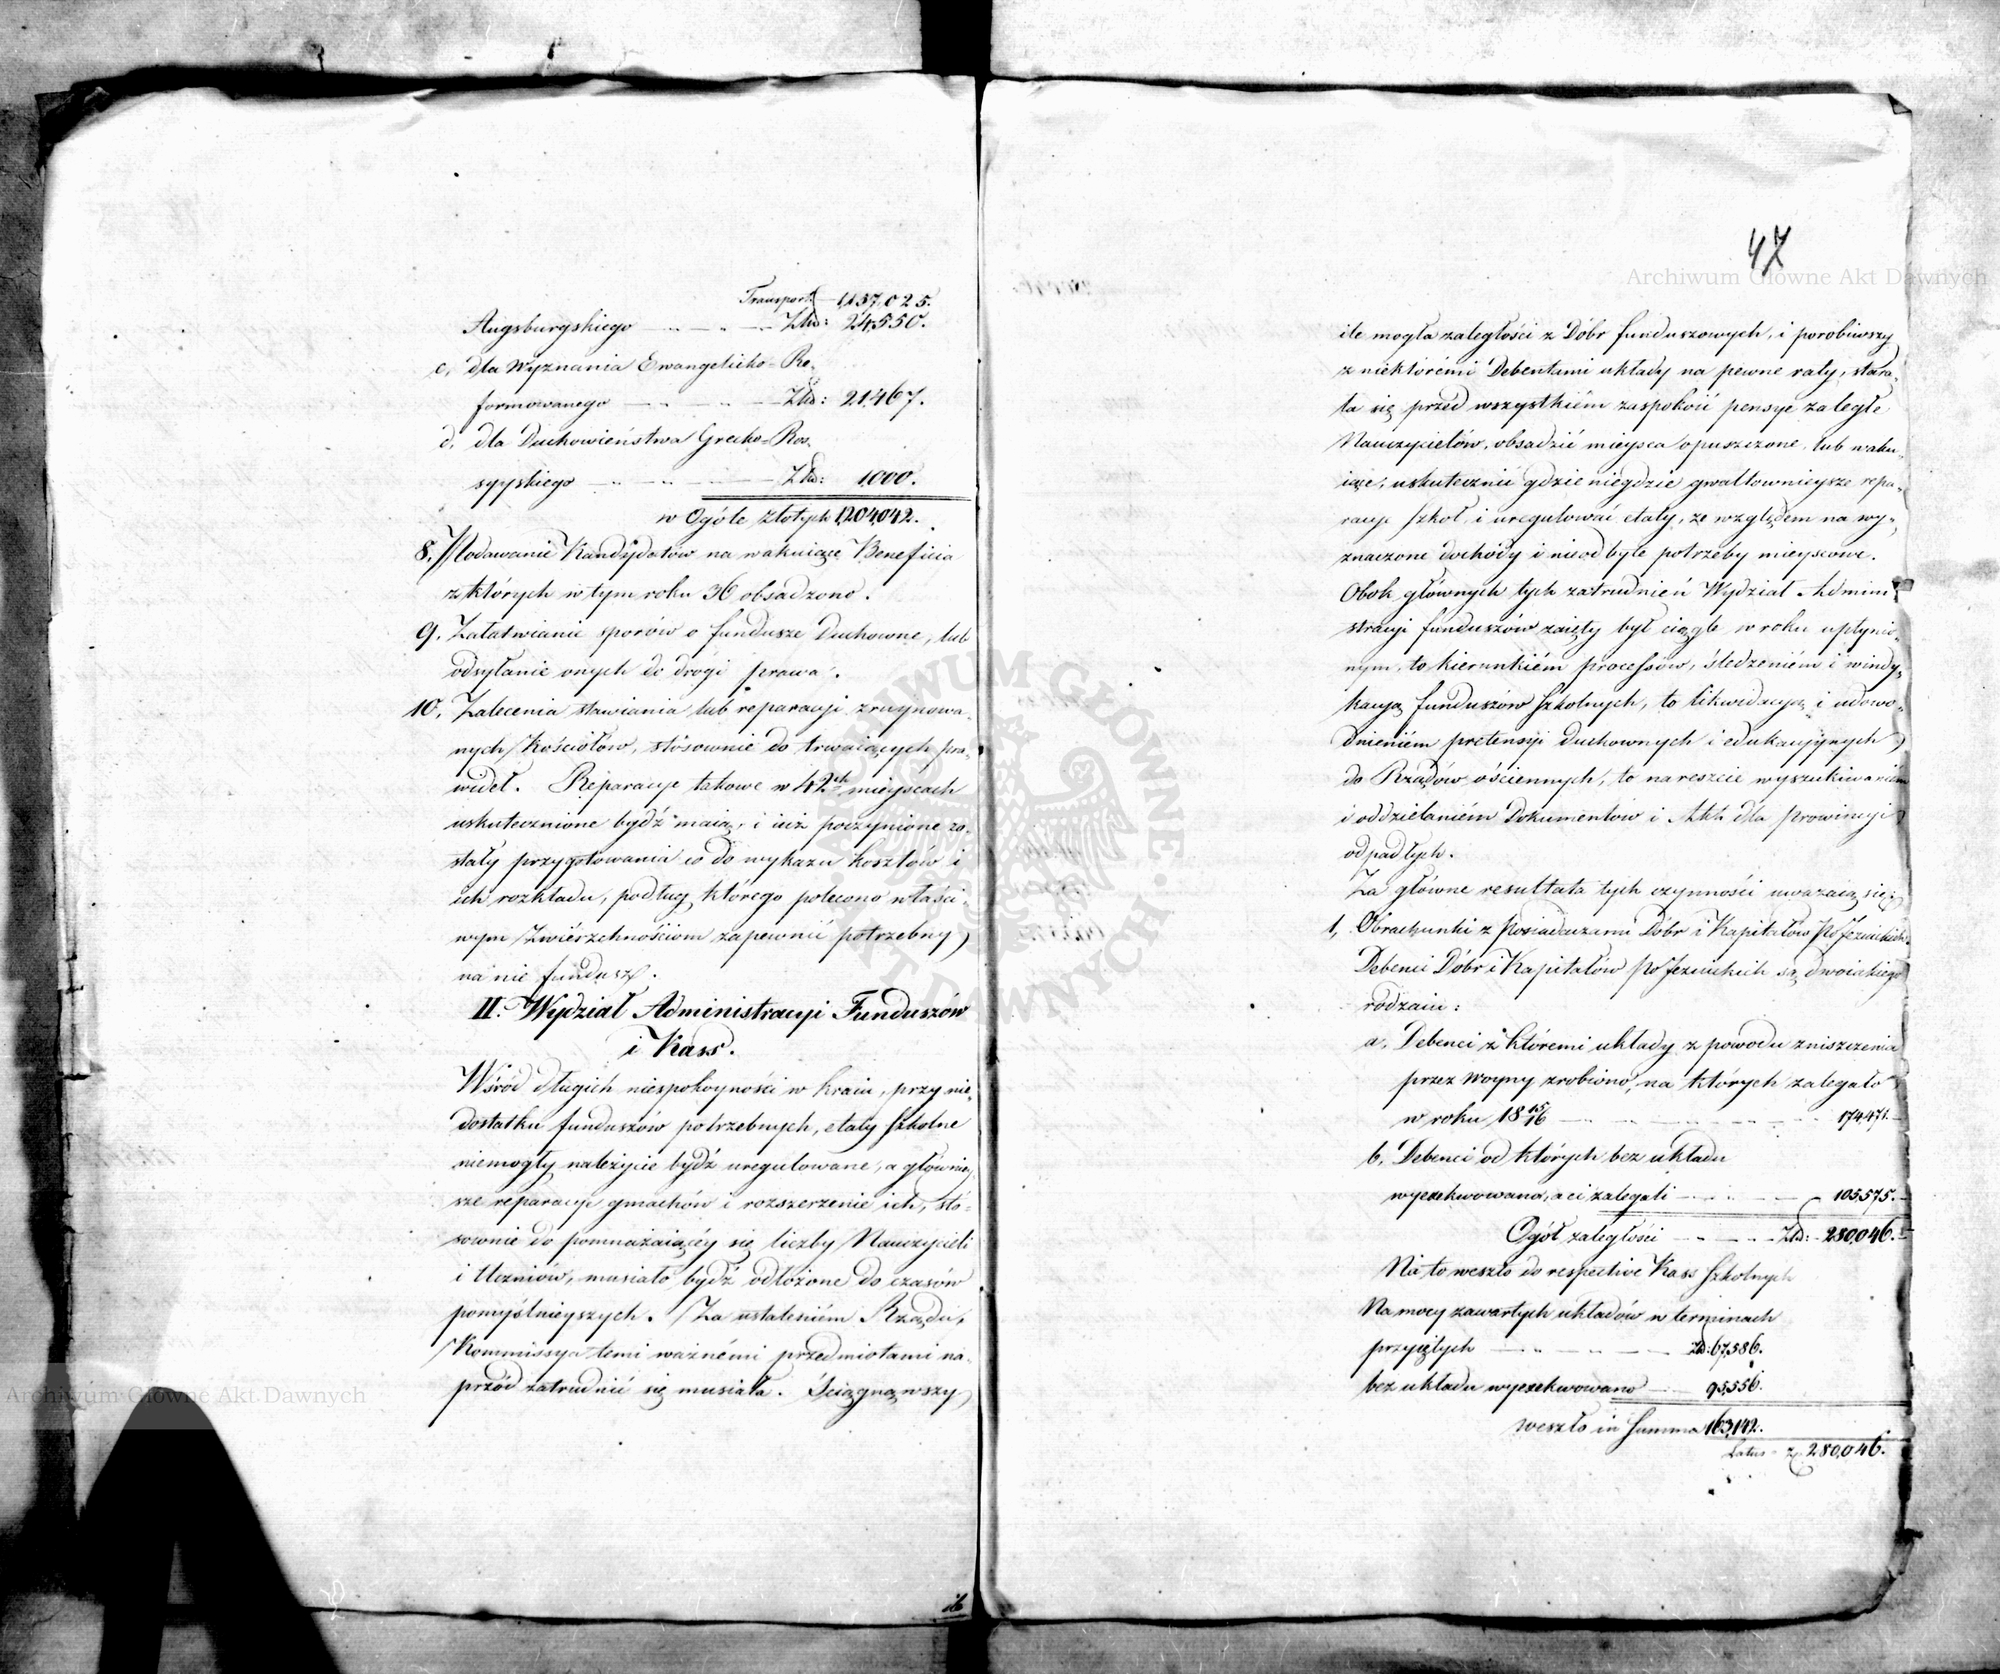 Transport 1,157,025.
Augsburgskiego — „ — „ — Złto: 24,550.
c, dla Wyznania Ewangelicko-Re„
formowanego — „ — „ — Złto: 21,467.
d, dla Duchowieństwa Grecko-Ros„
syyskiego — „ — „ — Złto: 1,000.
w Ogóle złotych 1,204,042.
8. Podawanie Kandydatów na wakuiące Beneficia
z których w tym roku 36 obsadzono.
9. Załatwianie sporów o fundusze Duchowne, lub
odsyłanie onych do drogi prawa.
10. Zalecenia stawiania lub reparacyi zruynowa„
nych Kościołów, stósownie do trwaiących pra„
wideł. Reparacye takowe w 42ch mieyscach
uskutecznione bydź maią, i iuż poczynione zo„
stały przygotowania co do wykazu kosztów i
ich rozkładu, podług którego polecono właści„
wym Zwierzchnościom zapewnić potrzebny
na nie fundusz.
II. Wydział Administracyi Funduszów
i Kass.
Wśród długich niespokoyności w kraiu, przy nie„
dostatku funduszów potrzebnych, etaty szkolne
niemogły należycie bydź uregulowane, a główniey„
sze reparacye gmachów i rozszerzenie ich, stó„
sownie do pomnażaiącéy się liczby Nauczycieli
i Uczniów, musiało bydź odłożone do czasów
pomyślnieyszych. Za ustaleniém Rządu,
Kommissya temi ważnémi przedmiotami na„
przód zatrudnić się musiała. Ściągnąwszy
ile
47
ile mogła zaległości z Dóbr funduszowych, i porobiwszy
z niektórémi Debentami układy na pewne raty, stara„
ła się przed wszystkiém zaspokoić pensye zaległe
Nauczycielów, obsadzić mieysca opuszczone, lub waku„
iące, uskutecznić gdzie niegdzie gwałtownieysze repa„
racye szkół, i uregulować etaty, ze względem na wy„
znaczone dochody i nieodbyte potrzeby mieyscowe.
Obok głównych tych zatrudnień Wydział Admini„
stracyi funduszów zaięty był ciągle w roku upłynio„
nym, to kierunkiém processów, śledzeniém i windy„
kacyą funduszów szkolnych, to likwidacyą i udowo„
dnieniém pretensyi duchownych i edukacyynych
do Rządów ościennych, to nareszcie wyszukiwaniém
i oddzielaniém Dokumentów i Akt dla prowincyi
odpadłych.
Za główne resultata tych czynności uważaią się:
1, Obrachunki z Posiadaczami Dóbr i Kapitałów PoJezuickich.
Debenci Dóbr i Kapitałów PoJezuickich są dwoiakiego
rodzaiu:
a, Debenci z którémi układy z powodu zniszczenia
przez woyny zrobiono, na których zalegało
w roku 1815/16 — „ — „ — 174,471.
b, Debenci od których bez układu
wyexekwowano, a ci zalegali — „ — 105,575.
Ogół zaległości — „ — „ Złto: 280,046.
Na to weszło do respective Kass szkolnych
Na mocy zawartych układów w terminach
przyiętych — „ — „ — Zł: 67,586.
bez układu wyexekwowano — 95,556.
weszło in Summa 163,142.
Latus - zł. 280,046.
Archiwum Główne Akt Dawnych
Archiwum Główne Akt Dawnych
ARCHIWUM GŁÓWNE AKT DAWNYCH